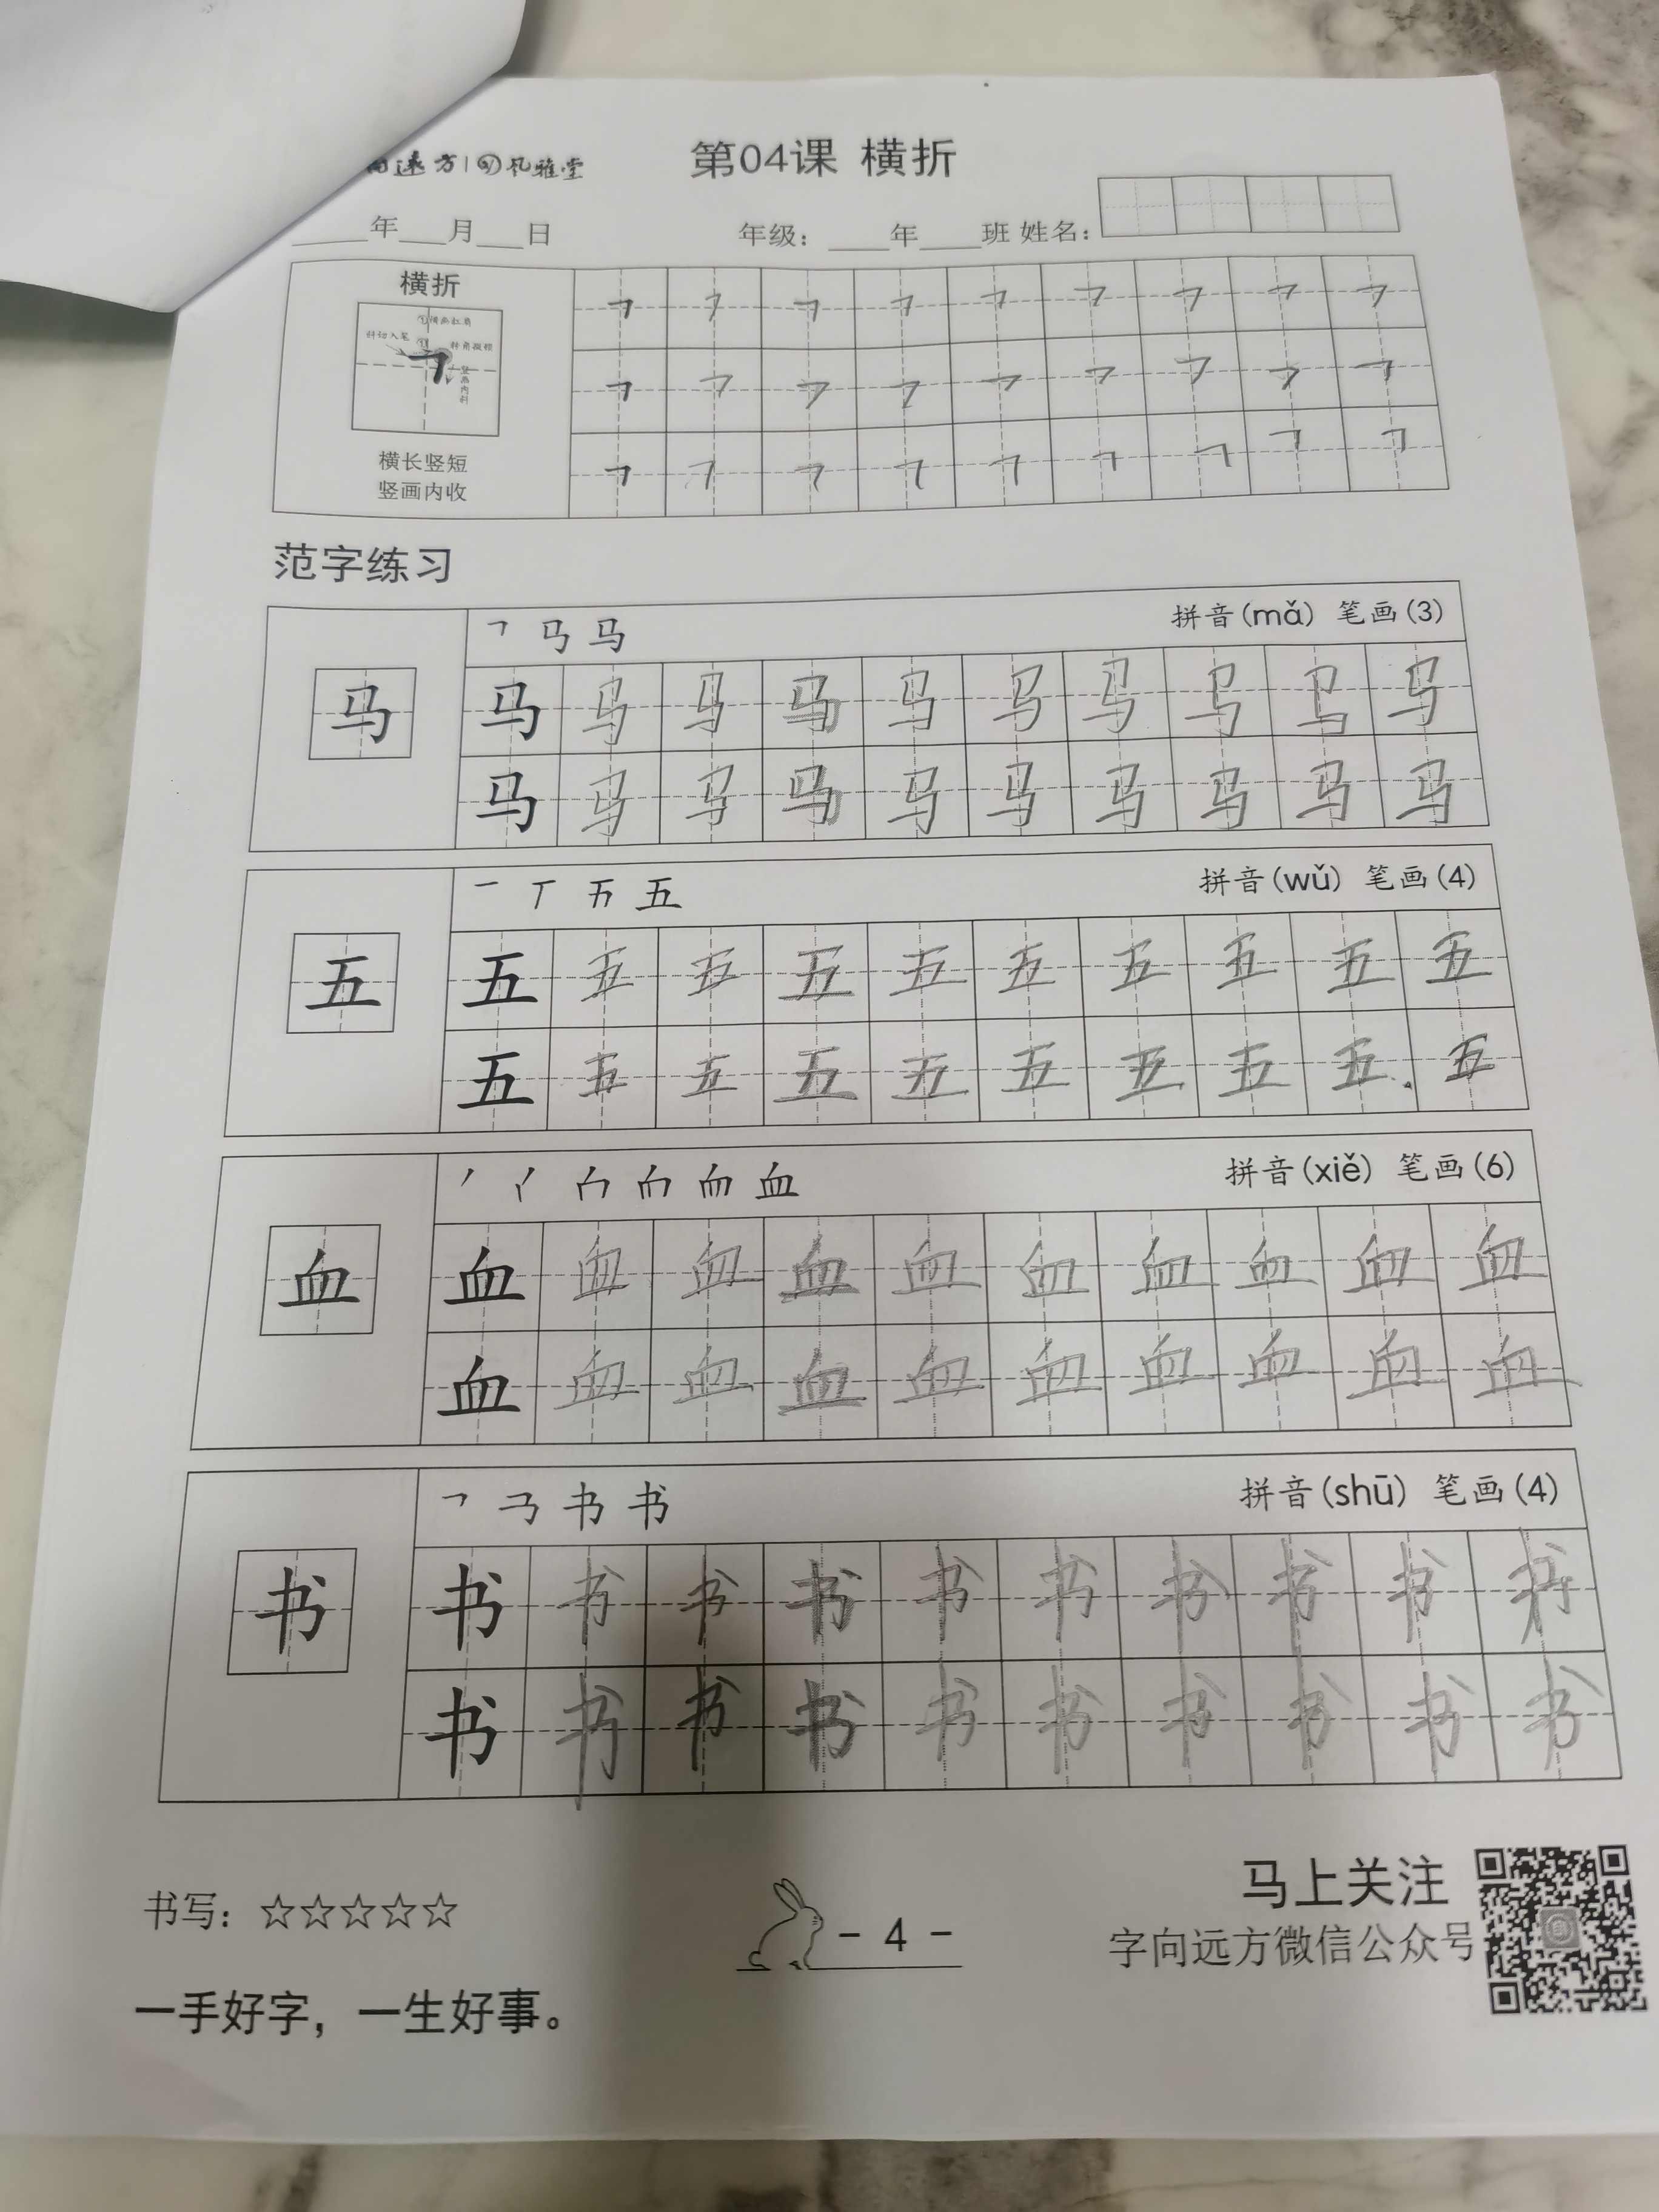 向远方 | 风雅堂
第04课 横折
年 月 日 年级： 年 班 姓名：
横折
①横画扛肩
斜切入笔
①
转角顿顿
竖画内斜
横长竖短
竖画内收
㇕ ㇕ ㇕ ㇕ ㇕ ㇕ ㇕ ㇕ ㇕
㇕ ㇕ ㇕ ㇕ ㇕ ㇕ ㇕ ㇕ ㇕
㇕ ㇕ ㇕ ㇕ ㇕ ㇕ ㇕ ㇕ ㇕
范字练习
马 拼音(mǎ) 笔画(3)
马
马 马 马 马 马 马 马 马 马 马
马 马 马 马 马 马 马 马 马 马
一 丅 五 拼音(wǔ) 笔画(4)
五
五 五 五 五 五 五 五 五 五 五
五 五 五 五 五 五 五 五 五 五
血 拼音(xiě) 笔画(6)
血
血 血 血 血 血 血 血 血 血 血
血 血 血 血 血 血 血 血 血 血
书 拼音(shū) 笔画(4)
书
书 书 书 书 书 书 书 书 书 书
书 书 书 书 书 书 书 书 书 书
书写：☆☆☆☆☆
- 4 -
马上关注
字向远方微信公众号
一手好字，一生好事。